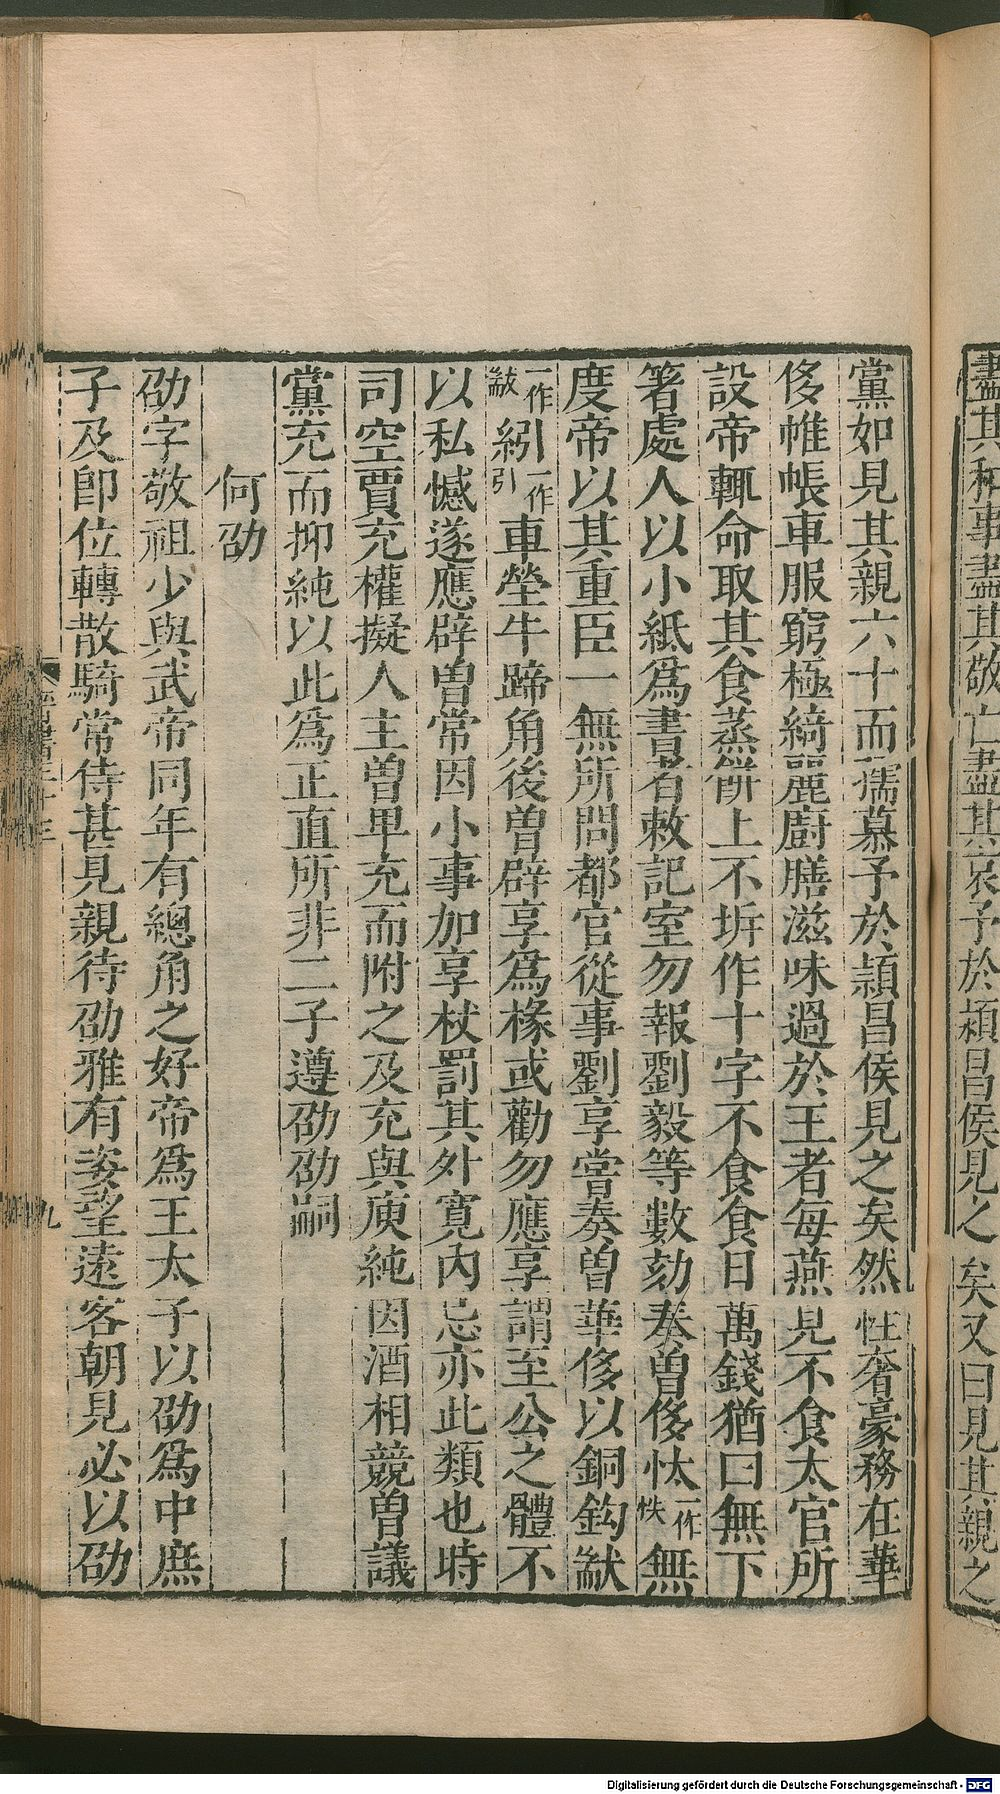 盡其私事盡其敬亡盡其哀予於潁昌侯見之矣又曰見其親之
黨如見其親六十而孺慕予於潁昌侯見之矣然性奢豪務在華
侈帷帳車服窮極綺麗廚膳滋味過於王者每燕見不食太官所
設帝輒命取其食蒸餅上不坼作十字不食食日萬錢猶曰無下
箸處人以小紙爲書者敕記室勿報劉毅等數劾奏曽侈忲一作怢無
度帝以其重臣一無所問都官從事劉享嘗奏曽華侈以銅鈎㹞
一作紖一作引車瑩牛蹄角後曽辟享爲椽或勸勿應享謂至公之體不
以私憾遂應辟曽常因小事加享杖罰其外寛內忌亦此類也時
司空賈充權擬人主曽卑充而附之及充與庾純因酒相競曽議
黨充而抑純以此爲正直所非二子遵劭劭嗣
何劭
劭字敬祖少與武帝同年有總角之好帝爲王太子以劭爲中庶
子及卽位轉散騎常侍甚見親待劭雅有姿望遠客朝見必以劭
九
Digitalisierung gefördert durch die Deutsche Forschungsgemeinschaft - DFG